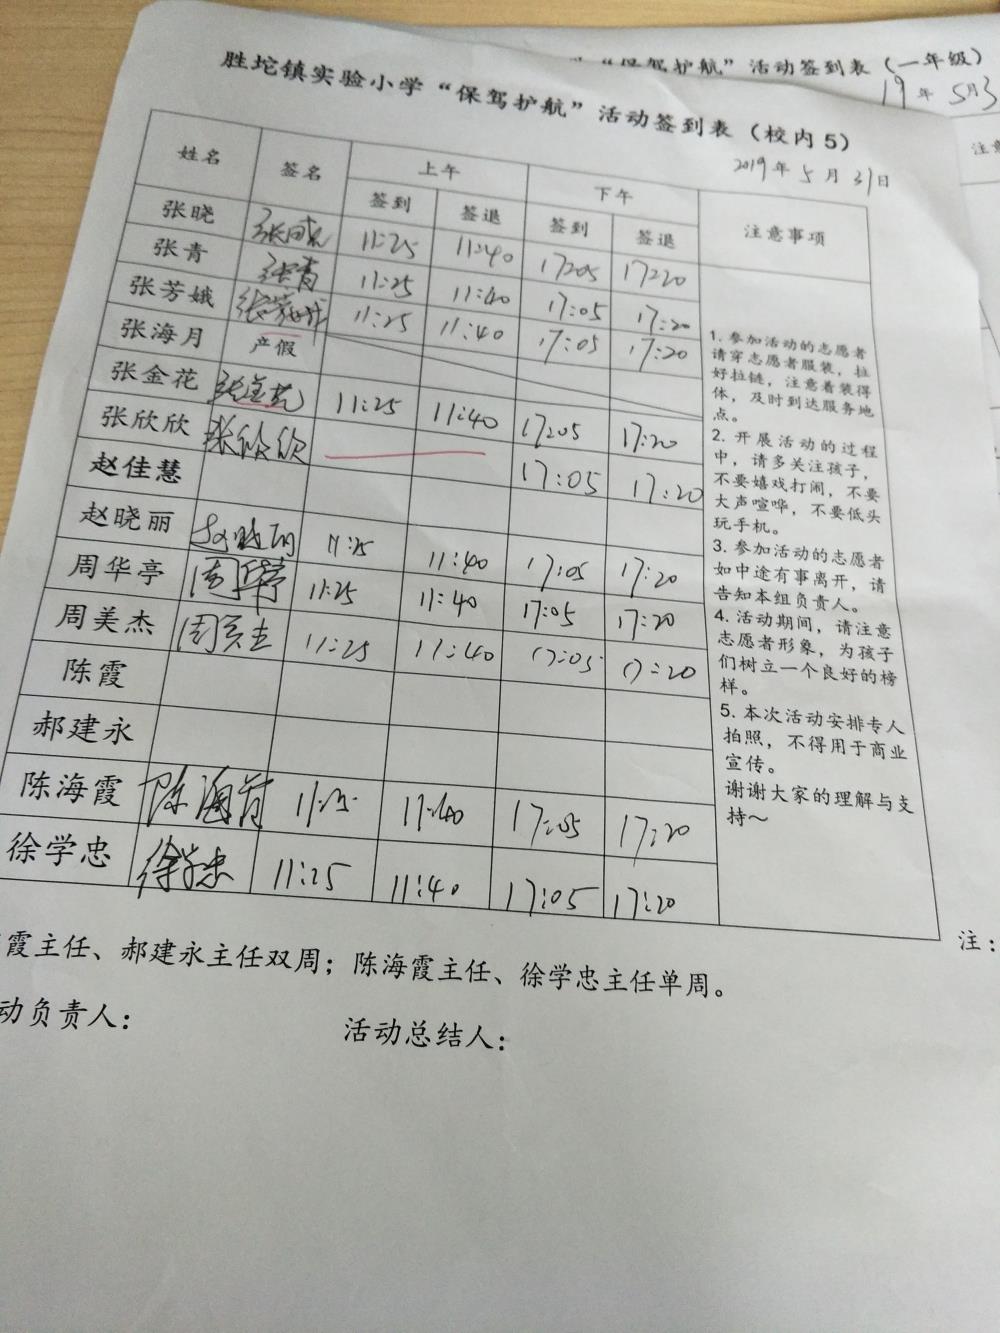 “保驾护航”活动签到表（一年级）
19年5月3
胜坨镇实验小学“保驾护航”活动签到表（校内5）
2019年5月31日
姓名 签名 上午 下午 注意事项
签到 签退 签到 签退
张晓 11:25 11:40 17:05 17:20
张青 张青 11:25 11:40 17:05 17:20
张芳娥 张芳娥 11:25 11:40 17:05 17:20
张海月 产假
张金花 张金花 11:25 11:40 17:05 17:20
张欣欣 张欣欣 17:05 17:20
赵佳慧
赵晓丽 赵晓丽 11:25 11:40 17:05 17:20
周华亭 周华亭 11:25 11:40 17:05 17:20
周美杰 周美杰 11:25 11:40 17:05 17:20
陈霞
郝建永
陈海霞 陈海霞 11:25 11:40 17:05 17:20
徐学忠 徐学忠 11:25 11:40 17:05 17:20
1. 参加活动的志愿者
请穿志愿者服装，拉
好拉链，注意着装得
体，及时到达服务地
点。
2. 开展活动的过程
中，请多关注孩子，
不要嬉戏打闹，不要
大声喧哗，不要低头
玩手机。
3. 参加活动的志愿者
如中途有事离开，请
告知本组负责人。
4. 活动期间，请注意
志愿者形象，为孩子
们树立一个良好的榜
样。
5. 本次活动安排专人
拍照，不得用于商业
宣传。
谢谢大家的理解与支
持～
注：
霞主任、郝建永主任双周；陈海霞主任、徐学忠主任单周。
动负责人： 活动总结人：
注意